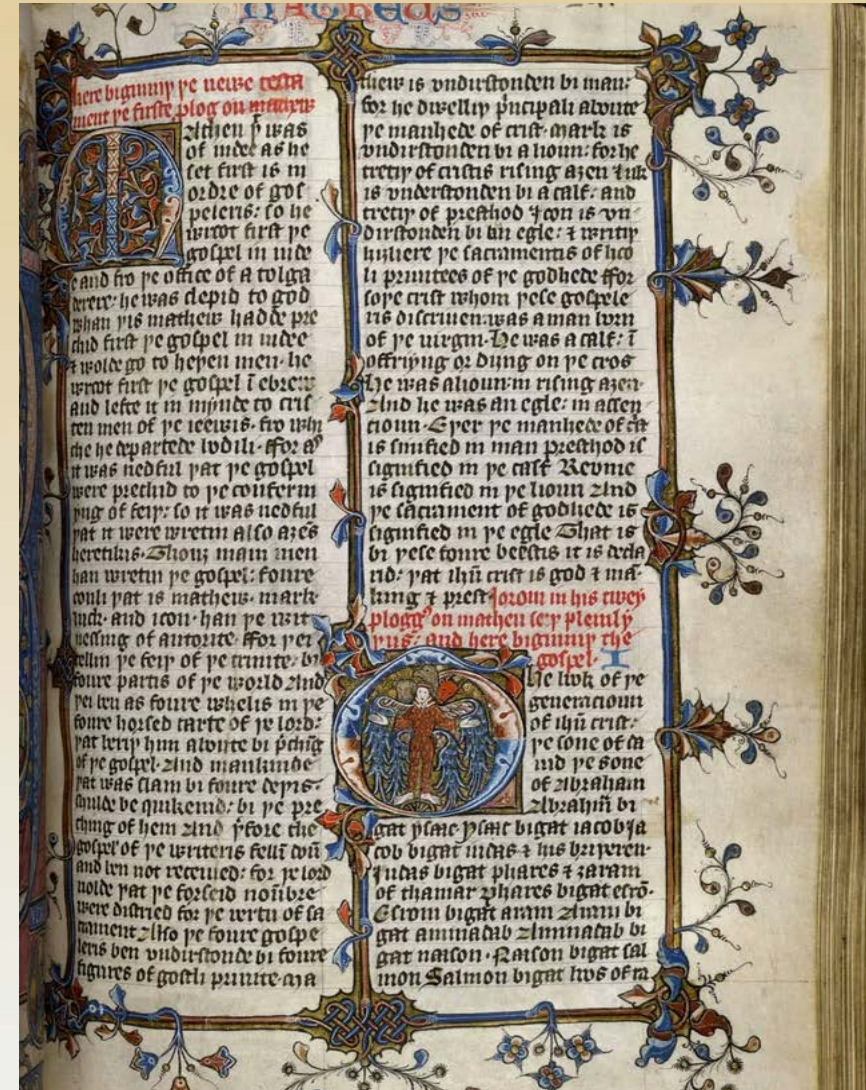 Matheus
here biginniþ þe newe testa
ment þe firste plog on mathew
Mathew þt was
of iudee as he
set first is in
ordre of gos
peleris: so he
wroot first þe
gospel in iude
e and fro þe office of a tolga
derere: he was clepid to god
whan þis mathew hadde pre
chid first þe gospel in iudee
⁊ wolde go to heþen men· he
wroot first þe gospel ī ebrew
and lefte it in mynde to cris
ten men of þe iewis· fro whi
che he departede bodili· ffor as
it was nedful þat þe gospel
were prechid to þe conferm
yng of feiþ: so it was nedful
þat it were wretin also aȝēs
heretikis· Thouȝ mani men
han wretin þe gospel: foure
oonli þat is mathew· mark
luck· and ioon· han þe wit
nessing of autorite· ffor þei
tellin þe feiþ of þe trinite· bi
foure partis of þe world And
þei ben as foure whelis in þe
foure horsed carte of þe lord:
þat beriþ him aboute bi p̄chīg
of þe gospel· And mankinde
þat was slain bi foure deþis·
schulde be quikenid: bi þe pre
ching of hem And þ̄fore the
gospel of þe writeris
and ben not receiued: for þe lord
nolde þat þe forseid noūbre
were distried for þe vertu of sa
crament Also þe foure gospe
leris ben vndirstonde bi foure
figures of gostli priuite· Ma
thew is vndirstonden bi man:
for he dwelliþ p̄ncipali aboute
þe manhede of crist· mark is
vndirstonden bi a lioun: for he
tretiþ of cristis rising aȝen luk
is vnderstonden bi a calf: and
tretiþ of presthod Ioon is vn
dirstonden bi an egle: ⁊ writiþ
hiȝliere þe sacramentis of hoo
li priuitees of þe godhede ffor
soþe crist whom þese gospele
ris discriuen: was a man born
of þe uirgin· He was a calf: ī
offriyng or diyng on þe cros
He was a lioun in rising aȝen·
And he was an egle: in ascen
cioun· Eþer þe manhede of c̄st
is sinified in man presthod is
signified in þe calf Rewme
is signified in þe lioun And
þe sacrament of godhede is
signified in þe egle That is
bi þese foure beestis it is decla
rid: þat ihū crist is god ⁊ mā·
king ⁊ prest Ierom in his twey
plogg' on mathew seiþ pleinly
þus: and here biginniþ the
gospel· I
The book of þe
generacioun
of ihū crist:
þe sone of da
uid þe sone
of Abraham
Abrahā bi
gat ysaac Ysaac bigat iacob Ja
cob bigat iudas ⁊ his briþeren·
Judas bigat phares ⁊ zaram
of thamar Phares bigat esrō·
Esrom bigat aram Aram bi
gat aminadab Aminadab bi
gat naason· Naason bigat sal
mon Salmon bigat boos of ra